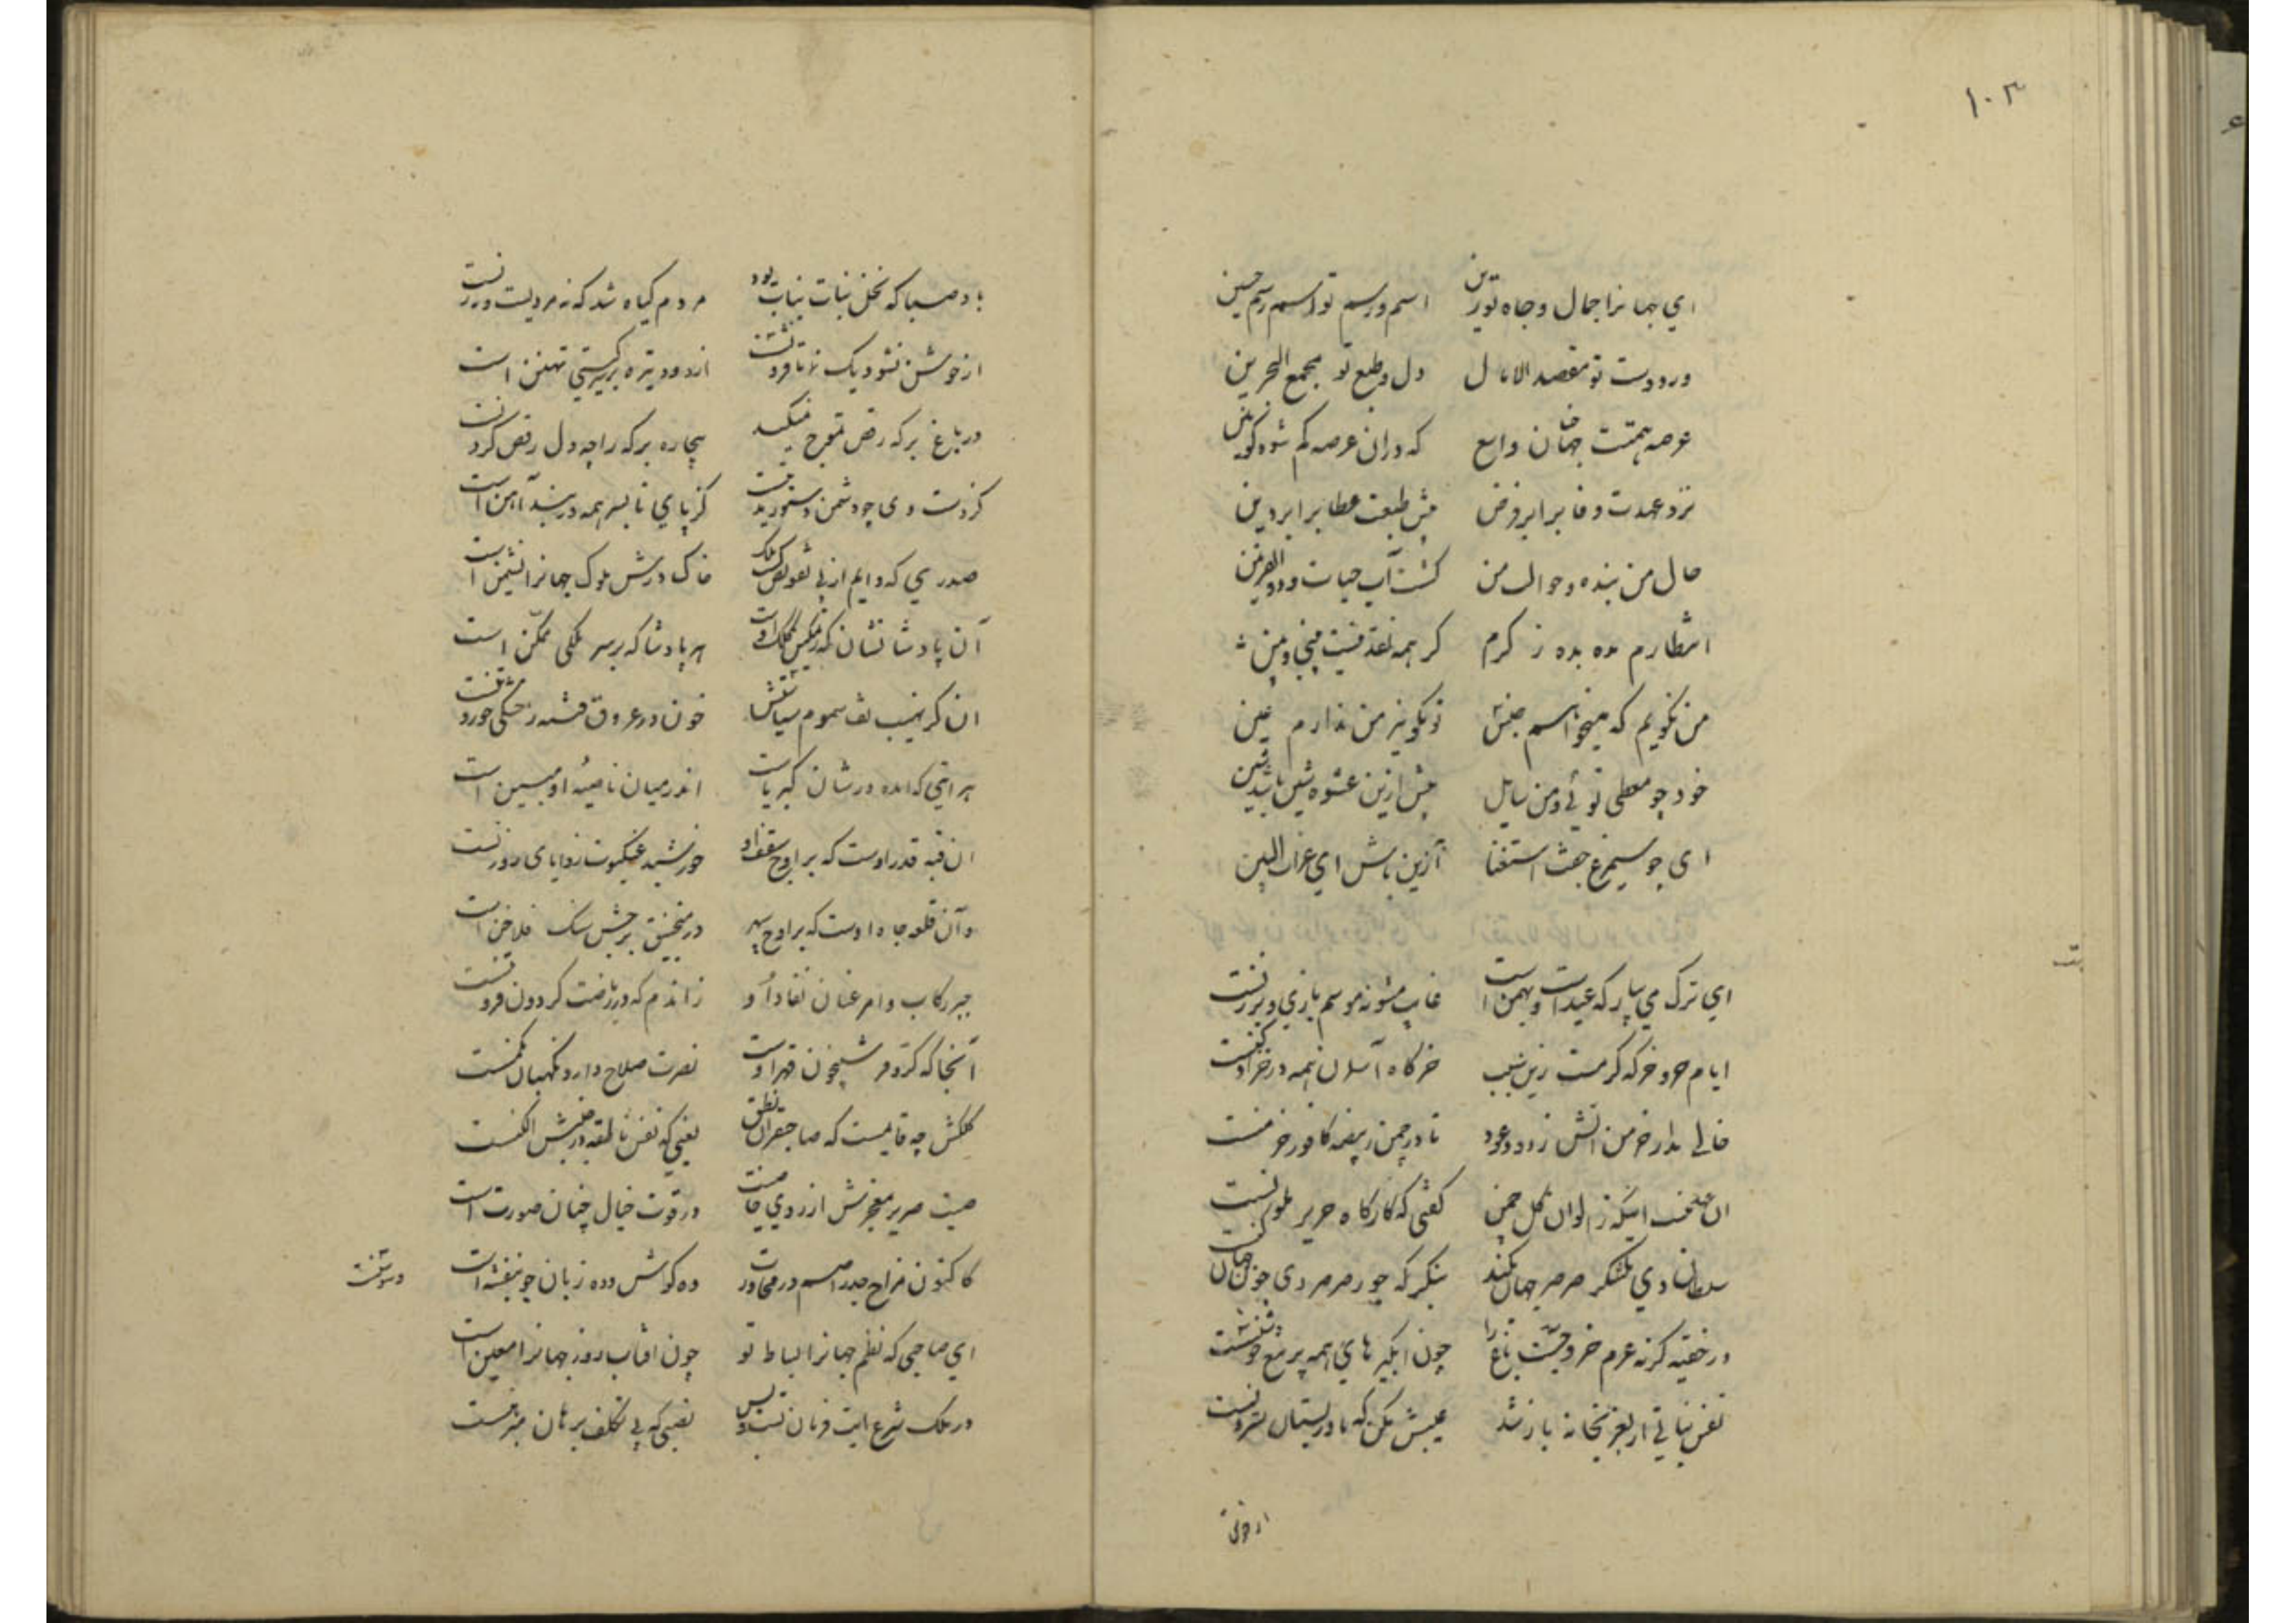 ۱۰۳
ای جهانرا جمال و جاه تو زین اسم و رسم تو اسم رسم حسین
در و دست تو مقصد الامال دل و طبع تو مجمع البحرین
عرصه همتت جهان واسع که دران عرصه کم شود کونین
نزد عهدت وفا برابر فرض پیش طبعت عطا برابر دین
حال من بنده و حوالت من گشت آب حیات و ذو القرنین
انتظارم مده بده ز کرم گر همه نقد نیست
من نگویم که میخواهم جنس تو نگویی نیز من ندارم عین
خود چو معطی توئی و من سایل بیش ازین عشوه شین باشد شین
ای چو سیمرغ جفت استغنا از این باش ای غراب البین
ای ترک می بیار که عیدست و بهمن است غایب مشو نه موسم بازی و برزنست
ایام خز و خرگه گرمست زین سبب خرگاه آسمان همه در خز ادکنست
خالی مدار خرمن آتش ز دود عود تا در چمن ز بیضه کافور خرمنست
ان عهد نیست اینکه ز الوان گل چمن گفتی که کارگاه حریر ملونست
سلطان دی بلشکر صرصر جهان بکند بنگر که جور صرصر دی چون جهان کنست
در خفیه گر نه عزم خروجست باغ را چون آبگیرهای همه پر تیغ و جوشنست
نفس نباتی ار بعزبخانه باز شد عیبش مکن که مادر بستان سترونست
باد صبا که فحل بنات نبات بود مردم گیاه شد که نه مردست و نه زنست
از جوشش نشود یک زمان فرو از دود تیره بر سر گیتی نهنبن است
در باغ برکه رقص تموج نمیکند بیچاره برکه را چه دل رقص کردنست
کز دست دی چو دشمن دستور کز پای تا بسر همه در بند آهن است
صدری که دایم از پی تفویض ملک خاک درش ملوک جهانرا نشیمن است
آن پادشا نشان که ز تمکین کلک اوست هر پادشا که بر سر ملکی ممکن است
ان کز نهیب تف سموم سیاستش خون در عروق فتنه ز خشکی چو روغنست
هر آیتی که آمده در شان کبریاست اندر میان ناصیه او مبین است
ان قبه قدر اوست که بر اوج سقف او خورشید عنکبوت زوایای روزنست
و آن قلعه جاه اوست که بر اوج سپهر در منجنیق برجش سنگ فلاخن است
جبر رکاب و امر عنان نفاذ او زاندم که در ریاضت گردون
آنجا که کر و فر شبیخون قهر اوست نصرت صلاح دارد نگهبان مکمنست
کلکش چه قایلست که صاحبقران نطق یعنی که نفس ناطقه در جنبش الکنست
صیت صریر معجزش از روی خاصیت در قوت خیال چنان صورت است
کاکنون مزاج جذر اصم در محاورات ده گوش و ده زبان چو بنفشه است
ای صاحبی که نظم جهانرا بساط تو چون افتاب روز جهانرا معین است
در ملک شرع ایت فرمان تست و بس نصی که بی تکلف برهان مبرهنست